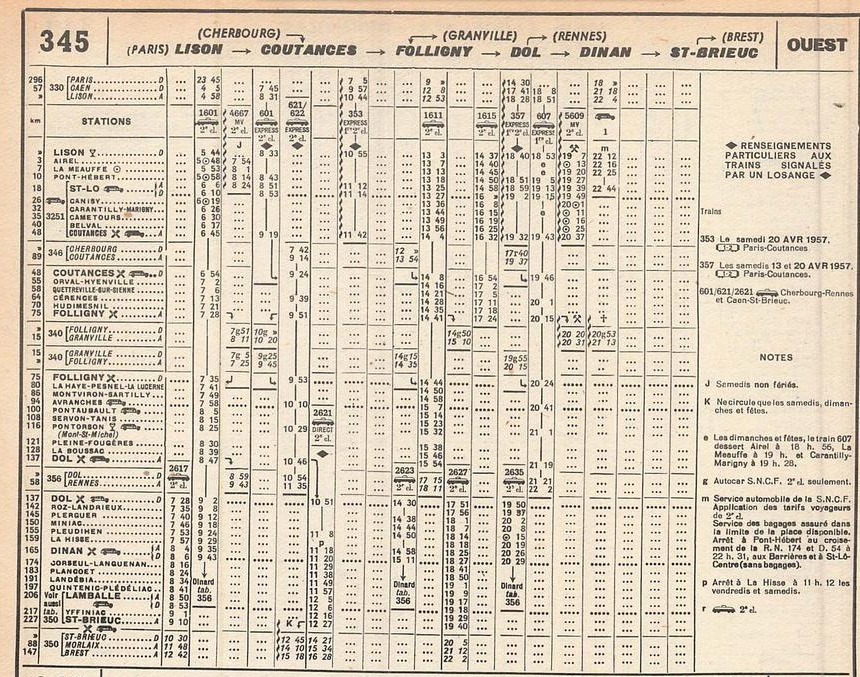 345
(CHERBOURG)
(GRANVILLE)
(RENNES)
(BREST)
(PARIS) LISON → COUTANCES → FOLLIGNY → DOL → DINAN → ST-BRIEUC
OUEST
296 330 PARIS D 23 45 7 5 9 » 14 30 18 »
57 CAEN D 4 5 7 45 9 57 12 8 17 41 18 8 21 18
» LISON A 4 58 8 31 10 44 12 53 18 28 18 51 22 4
km STATIONS 1601 2e cl. 4667 MV 2e cl. 601 EXPRESS 2e cl. 621/622 EXPRESS 2e cl. 353 EXPRESS 1611 2e cl. 1615 2e cl. 357 EXPRESS 607 EXPRESS 2e cl. 5609 MV 2e cl. 1
» LISON D 5 44 J 8 33 10 55 13 3 14 37 18 40 18 53 19 7 22 12
3 AIREL 5 48 7 54 13 7 14 40 e 19 13 22 16
7 LA MEAUFFE 5 53 8 1 13 13 14 45 e 19 20 22 25
10 PONT-HÉBERT 5 58 8 14 8 43 13 18 14 50 18 51 19 5 19 27
18 ST-LO A 6 6 8 24 8 51 11 12 13 25 14 58 18 59 19 13 19 39 22 44
D 6 10 8 53 11 14 13 27 16 » 19 2 19 15 19 49
26 CANISY 6 19 13 36 16 8 20 1
32 CARANTILLY-MARIGNY 6 26 13 44 16 15 e 11
35 3251 CAMETOURS 6 30 13 49 16 19 16
40 BELVAL 6 37 13 56 16 25 25
48 COUTANCES A 6 45 9 19 11 42 14 4 16 32 19 32 19 43 20 37
» 346 CHERBOURG D 7 42 12 » 17r40
89 COUTANCES A 9 14 13 54 19 37
48 COUTANCES D 6 54 9 24 14 8 16 54 19 46
55 ORVAL-HYENVILLE 7 2 14 16 17 2
58 QUETTREVILLE-SUR-SIENNE 7 6 14 21 17 5
64 CÉRENCES 7 13 9 39 14 28 17 11 20 1
70 HUDIMESNIL 7 21 14 35 17 18
75 FOLLIGNY A 7 28 9 51 14 41 17 24 20 15
» 340 FOLLIGNY D 7g51 10g » 14g50 20 20 20g53
15 GRANVILLE A 8 11 10 20 15 10 20 31 21 13
15 340 GRANVILLE D 7g 5 9g25 14g15 19g55
» FOLLIGNY A 7 25 9 45 14 35 20 15
75 FOLLIGNY D 7 35 9 53 14 44 20 24
80 LA HAYE-PESNEL-LA LUCERNE 7 41 14 50
86 MONTVIRON-SARTILLY 7 49 14 58
94 AVRANCHES 7 58 10 10 15 7 20 41
100 PONTAUBAULT 8 5 15 14
108 SERVON-TANIS 8 15 15 23
116 PONTORSON 8 25 10 29 15 32 21 1
(Mont-St-Michel)
121 PLEINE-FOUGÈRES 8 30 15 38
128 LA BOUSSAC 8 39 15 46
137 DOL A 8 47 10 46 15 54 21 19
2621 DIRECT 2e cl.
2617 2e cl. 2623 2e cl. 2627 2e cl. 2635 2e cl.
» 356 DOL D 8 59 10 54 17 15 21 21
58 RENNES A 9 43 11 35 18 11 22 2
137 DOL D 7 28 9 2 10 51 14 30 17 51 19 50
142 ROZ-LANDRIEUX 7 35 9 8 17 56
145 PLERGUER 7 40 9 12 14 38 18 1 20 2
150 MINIAC 7 46 9 18 14 44 18 7 20 8
155 PLEUDIHEN 7 53 9 24 14 50 18 14 15
159 LA HISSE 7 57 9 29 p 18 18 20 19
165 DINAN A 8 4 9 35 11 18 14 58 18 25 20 26
D 8 6 9 43 11 20 15 11 18 27 20 29
174 CORSEUL-LANGUENAN 8 16 11 31 18 41
183 PLANCOËT 8 24 11 39 18 50
191 LANDÉBIA 8 34 11 49 19 1
197 QUINTENIC-PLÉDÉLIAC 8 41 11 57 19 9
206 LAMBALLE A 8 50 12 5 19 17
D 8 53 12 6 19 18
217 YFFINIAC 9 1 12 16 19 29
227 350 ST-BRIEUC A 9 10 12 27 19 40
Voir aussi tab.
Dinard tab. 356
Dinard tab. 356
K r
» 350 ST-BRIEUC D 10 30 12 45 14 21 20 5
88 MORLAIX A 11 48 14 10 15 34 21 12
147 BREST A 12 42 15 18 16 28 22 2
◆ RENSEIGNEMENTS
PARTICULIERS AUX
TRAINS SIGNALÉS
PAR UN LOSANGE ◆
Trains
353 Le samedi 20 AVR 1957.
Paris-Coutances
357 Les samedis 13 et 20 AVR 1957.
Paris-Coutances.
601/621/2621 Cherbourg-Rennes
et Caen-St-Brieuc.
NOTES
J Samedis non fériés.
K Ne circule que les samedis, diman-
ches et fêtes.
e Les dimanches et fêtes, le train 607
dessert Airel à 18 h. 56, La
Meauffe à 19 h. et Carantilly-
Marigny à 19 h. 28.
g Autocar S.N.C.F. 2e cl. seulement.
m Service automobile de la S.N.C.F.
Application des tarifs voyageurs
de 2e cl.
Service des bagages assuré dans
la limite de la place disponible.
Arrêt à Pont-Hébert au croise-
ment de la R.N. 174 et D. 54 à
22 h. 31, aux Barrières et à St-Lô-
Centre (sans bagages).
p Arrêt à La Hisse à 11 h. 12 les
vendredis et samedis.
r 2e cl.